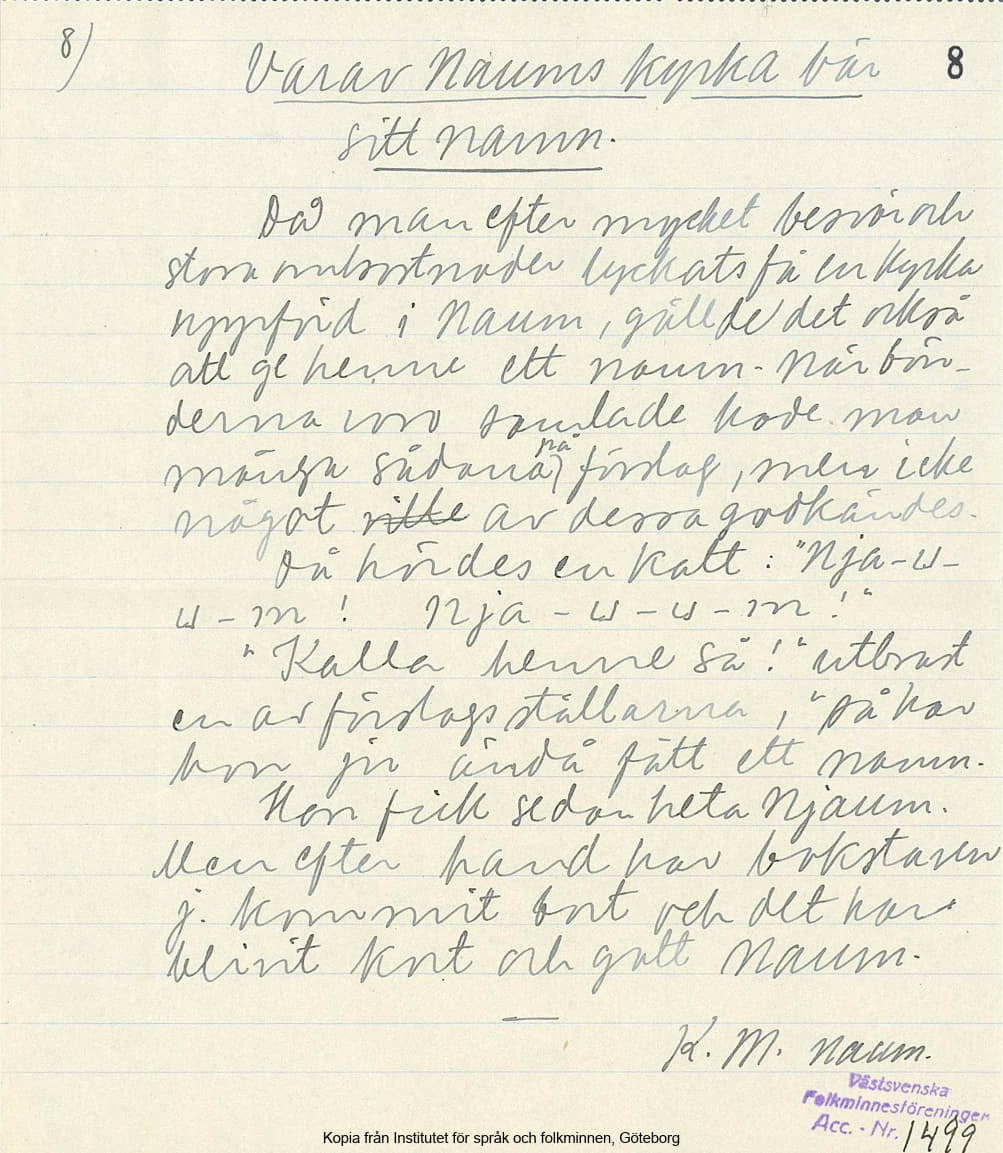 8)
Varav Naums kyrka bär 8
sitt namn.
Då man efter mycket besvär och
stora omkostnader lyckats få en kyrka
uppförd i Naum, gällde det också
att ge henne ett namn. När bön-
derna voro samlade hade man
många sådana på förslag, men icke
något av dessa godkändes.
Då hördes en katt: "Nja-u-
u-m! Nja-u-u-m!"
"Kalla henne så!" utbrast
en av förslagsställarna, "så har
hon ju ändå fått ett namn.
Hon fick sedan heta Njaum.
Men efter hand har bokstaven
j. kommit bort och det har
blivit kort och gott Naum.
K. M. Naum.
Västsvenska
Folkminnesföreningen
Acc. - Nr. 1499
Kopia från Institutet för språk och folkminnen, Göteborg